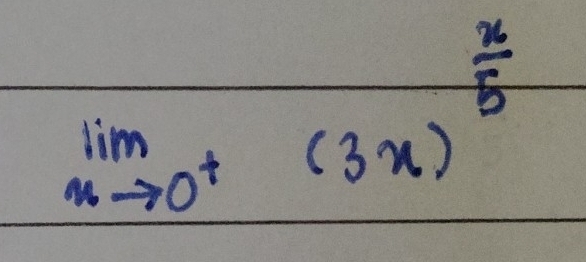 lim
x→0⁺ (3x)^(x/5)